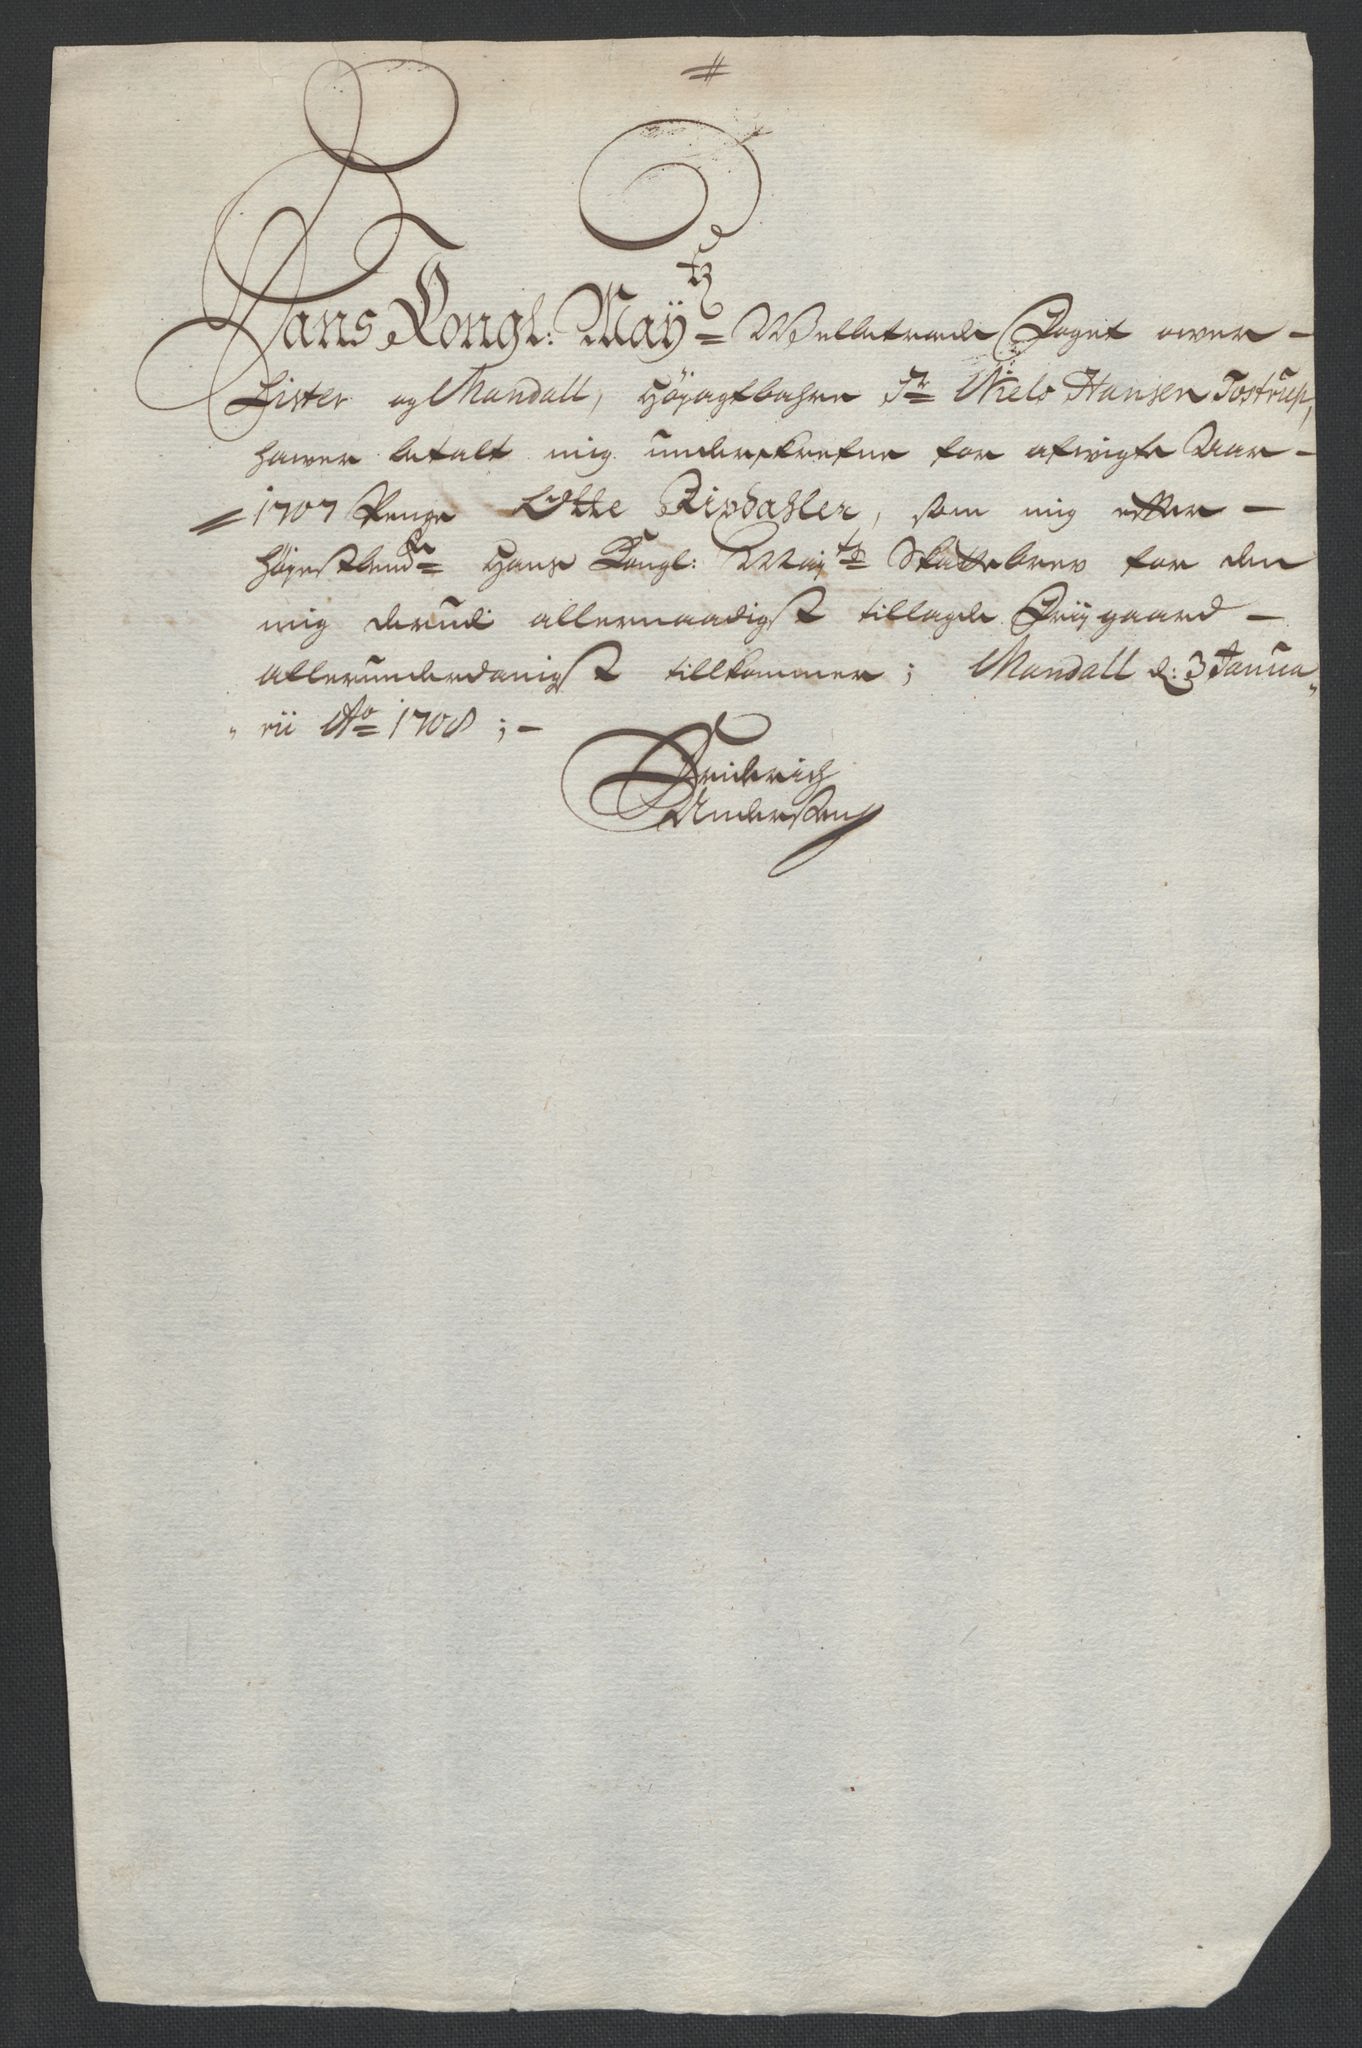 Hans Kongl: Maÿtz Welbetroede Foget ower
Lister og Mandall, Høyagtbahre Sr Niels Hansen Tostrup,
hawer betalt mig underskrefne for afvigte Aar
1707 Penge Otte Rixdahler, som mig efter
høystbemte Hans Kongl: Maytz Skattebrev for den
mig derudi allernaadigst tillagde Friigaard
allerunderdanigst tillkommer; Mandall d: 3 Janua
rii Ao 1708;
Friderich
Andersen